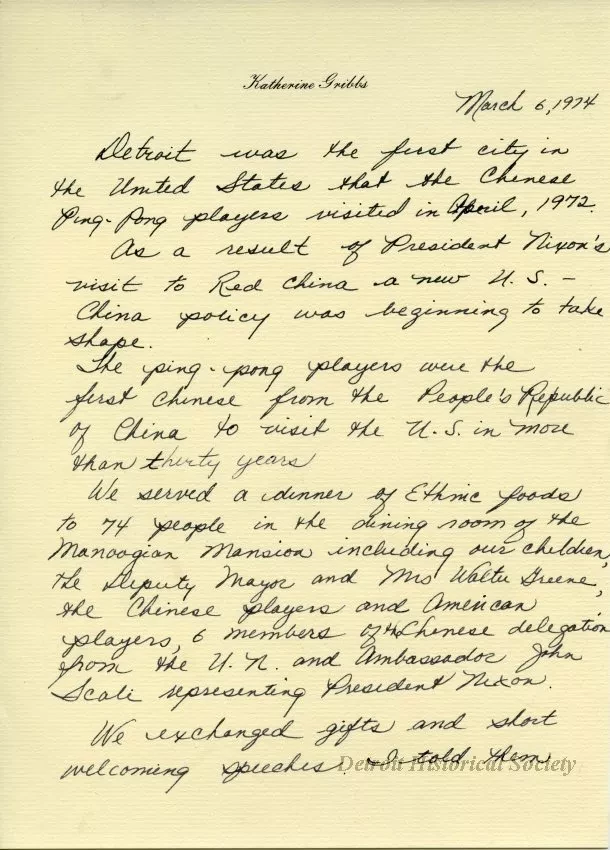 Katherine Gribbs
March 6, 1974
Detroit was the first city in
the United States that the Chinese
Ping-Pong players visited in April, 1972.
As a result of President Nixon's
visit to Red China a new U.S. -
China policy was beginning to take
shape.
The ping-pong players were the
first Chinese from the People's Republic
of China to visit the U.S. in more
than thirty years
We served a dinner of Ethnic foods
to 74 people in the dining room of the
Manoogian Mansion including our children,
the Deputy Mayor and Mrs Walter Greene,
the Chinese players and American
players, 6 members of the Chinese delegation
from the U.N. and Ambassador John
Scali representing President Nixon.
We exchanged gifts and short
welcoming speeches. I told them
Detroit Historical Society